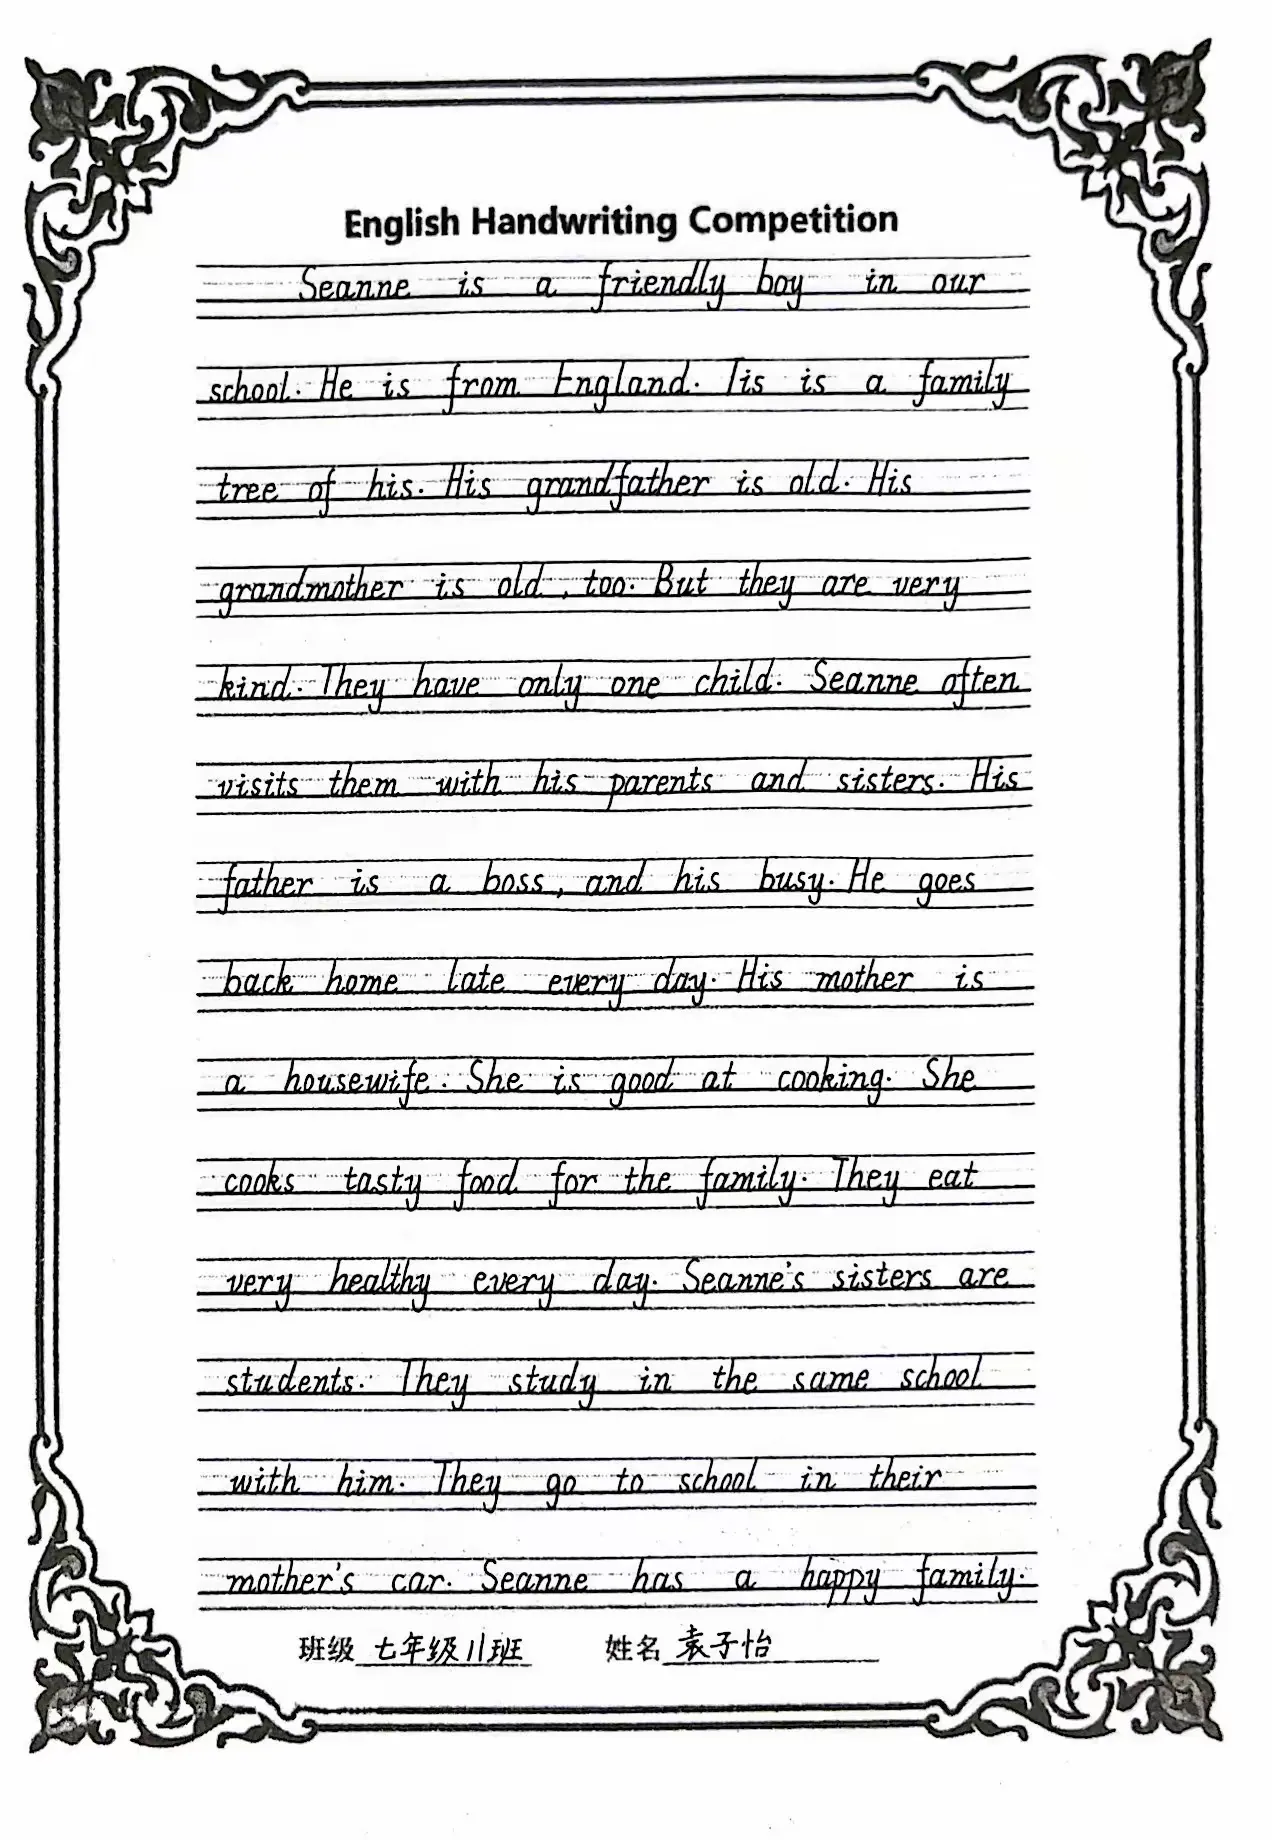 English Handwriting Competition
Seanne is a friendly boy in our
school. He is from England. Tis is a family
tree of his. His grandfather is old. His
grandmother is old, too. But they are very
kind. They have only one child. Seanne often
visits them with his parents and sisters. His
father is a boss, and his busy. He goes
back home late every day. His mother is
a housewife. She is good at cooking. She
cooks tasty food for the family. They eat
very healthy every day. Seanne's sisters are
students. They study in the same school
with him. They go to school in their
mother's car. Seanne has a happy family.
班级 七年级11班 姓名 袁子怡